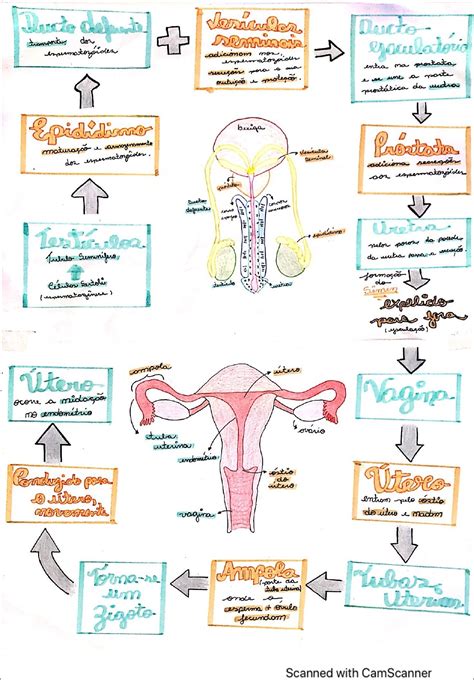 Ducto deferente
dos
espermatozóides
Vesículas
seminais
adicionam nos
espermatozóides
secreções para a sua
nutrição e proteção.
Ducto
ejaculatório
entra na próstata
e se une a parte
prostática da uretra
Epidídimo
maturação e armazenamento
dos espermatozóides.
Próstata
adiciona secreções
aos espermatozóides.
Testículos
Túbulo Seminífero
Células Sertolli
(espermatogênese)
Bexiga
vesícula
Seminal
próstata
Ducto
deferente
corpo
corpo
epidídimo
testículo
uretra
Uretra
formação
do
Sêmen
expelido
para fora
(ejaculação)
Útero
ocorre a nidação
no endométrio
ampola
útero
tuba
uterina
ovário
endométrio
óstio do
útero
vagina
Vagina
Conduzido para
o útero,
novamente
Útero
entram pelo óstio
do útero e nadam
Torna-se
um
Zigoto
Ampola
(parte da
tuba uterina)
onde o
esperma + óvulo
fecundam
Tubas
Uterinas
Scanned with CamScanner